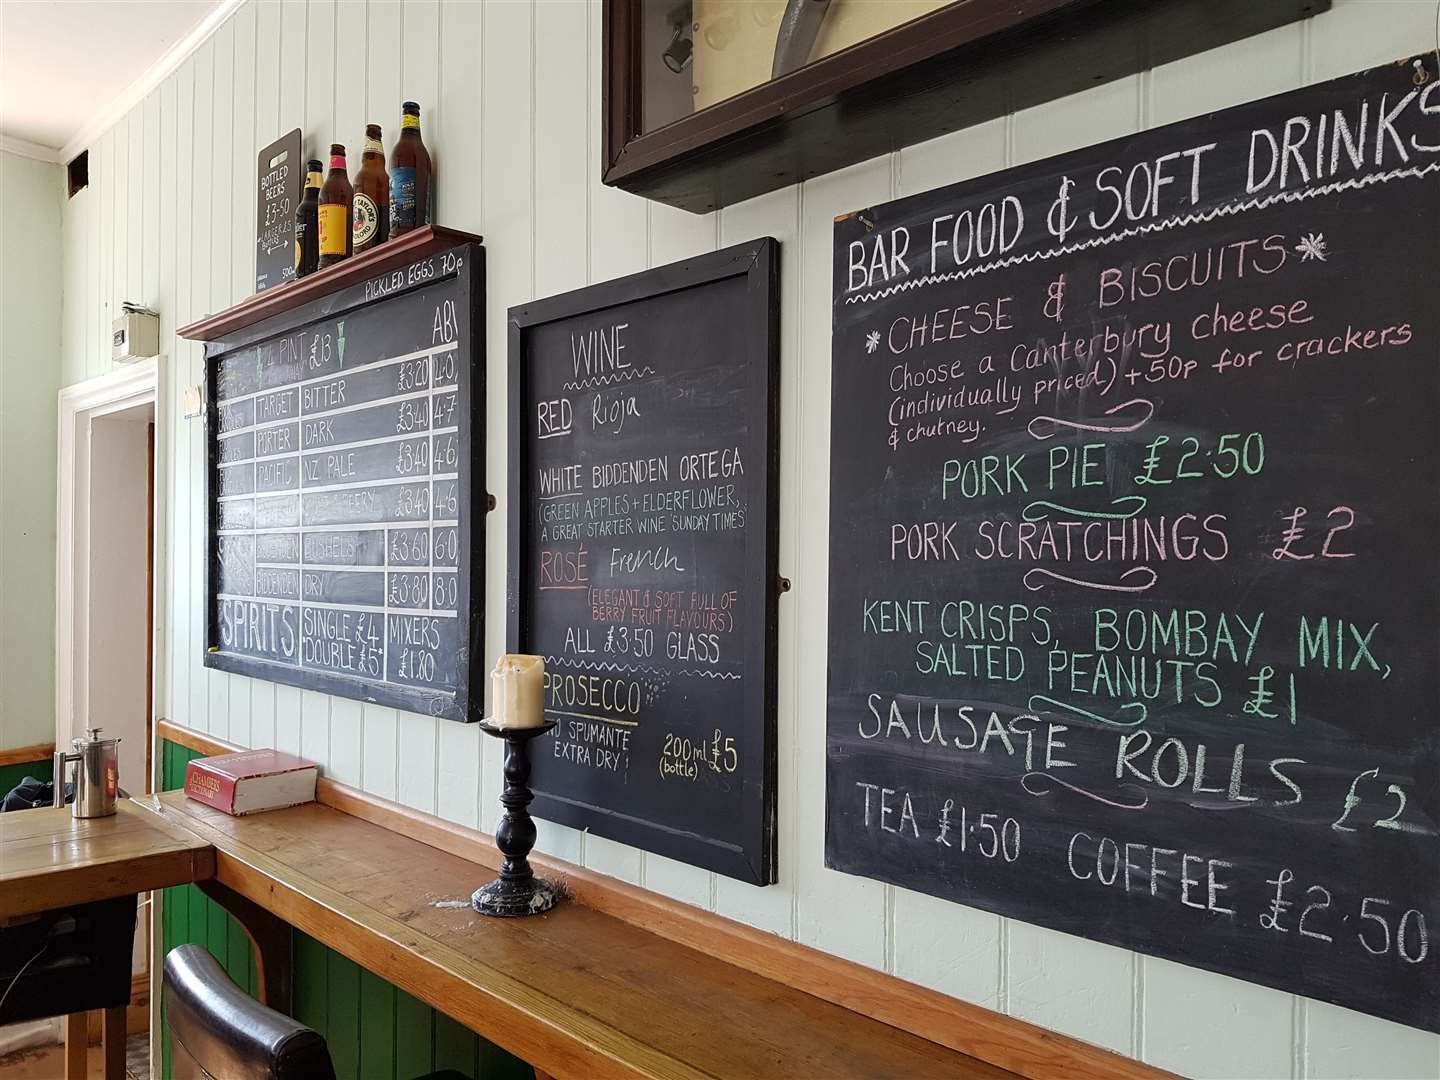 BOTTLED
BEERS
£3-50
LARGER £5
BOTTLES
500ml
TAYLOR'S
PICKLED EGGS 70p
4 PINT £13
TARGET BITTER £3.20 4.0
PORTER DARK £3.40 4.7
PACIFIC NZ PALE £3.40 4.6
£3.40 4.6
BUSHELS £3.60 6.0
BIDDENDEN DRY £3.80 8.0
SPIRITS SINGLE £4 MIXERS
DOUBLE £5* £1.80
CHAMBERS
DICTIONARY
WINE
RED Rioja
WHITE BIDDENDEN ORTEGA
(GREEN APPLES + ELDERFLOWER,
A GREAT STARTER WINE SUNDAY TIMES
ROSÉ French
(ELEGANT & SOFT FULL OF
BERRY FRUIT FLAVOURS)
ALL £3.50 GLASS
PROSECCO
SPUMANTE
EXTRA DRY
200ml £5
(bottle)
BAR FOOD & SOFT DRINKS
* CHEESE & BISCUITS *
Choose a Canterbury cheese
(individually priced) + 50p for crackers
& chutney.
PORK PIE £2.50
PORK SCRATCHINGS £2
KENT CRISPS, BOMBAY MIX,
SALTED PEANUTS £1
SAUSAGE ROLLS £2
TEA £1.50 COFFEE £2.50